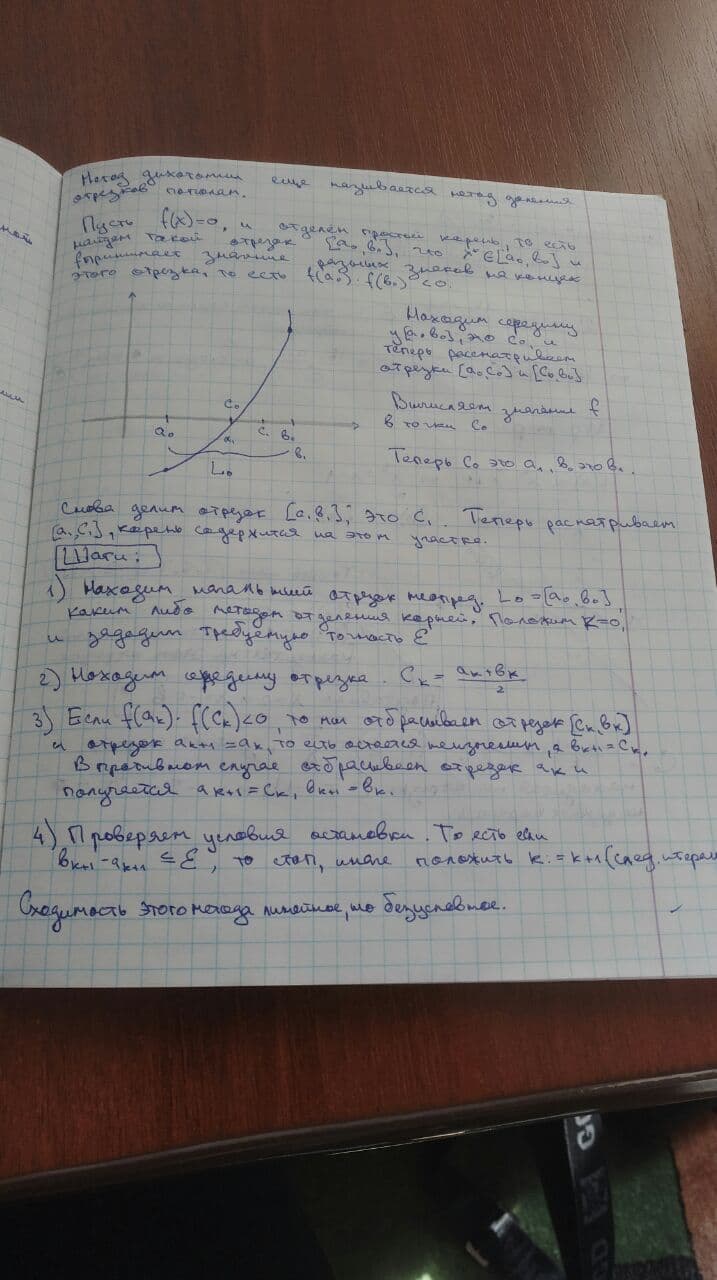 Метод дихотомии еще называется метод деления
отрезков пополам.
Пусть f(x)=0, и отделён простой корень, то есть
найден такой отрезок [a₀,b₀], что x* ∈ [a₀,b₀] и
принимает значение разных знаков на концах
этого отрезка, то есть f(a₀)·f(b₀)<0.
Находим середину
у [a₀,b₀], это c₀, и
теперь рассматривает
отрезки [a₀,c₀] и [c₀,b₀]
Вычисляем значения f
в точки c₀
Теперь c₀ это a₁, b₀ это b₁.
a₀ c₀ a₁ c₁ b₀ b₁
L₀
Снова делим отрезок [a₁b₁], это c₁. Теперь расматривает
[a₁,c₁], корень содержится на этом участке.
Шаги:
1) Находим начальний отрезок неопред. L₀=[a₀,b₀],
каким либо методом отделения корней. Положим k=0,
и зададим требуемую точность ε
2) Находим середину отрезка. Cₖ = (aₖ+bₖ)/2
3) Если f(aₖ)·f(cₖ)<0, то мы отбрасываем отрезок [cₖ,bₖ]
и отрезок aₖ₊₁=aₖ, то есть остается неизменим, а bₖ₊₁=cₖ.
В противном случае отбрасываем отрезок aₖ и
получается aₖ₊₁=cₖ, bₖ₊₁=bₖ.
4) Проверяем условия остановки. То есть если
bₖ₊₁-aₖ₊₁ ≤ ε, то стоп, иначе положить k:=k+1 (след. итерац
Сходимость этого метода линейное, но безусловное.